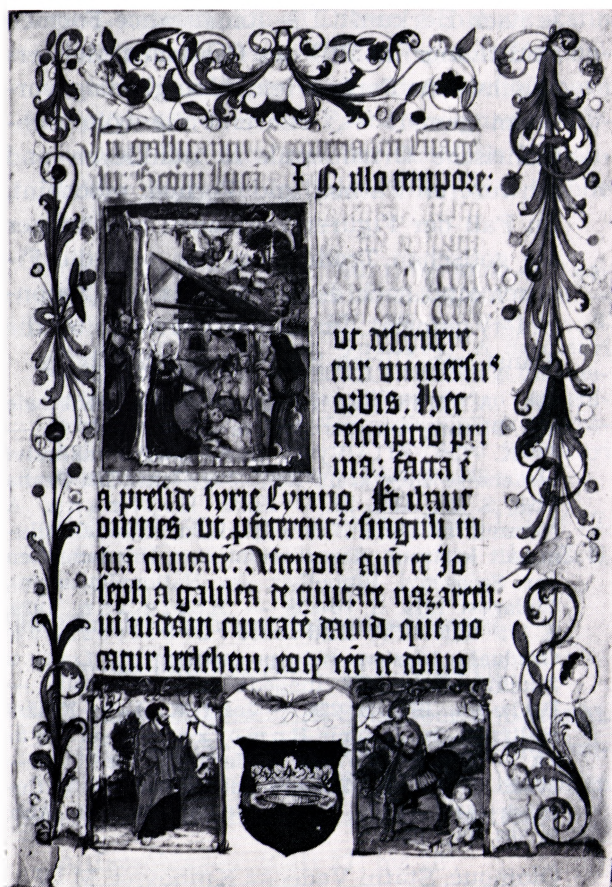 In gallicantu. Sequētia sc̄ti Euāge
lij. Scd̄m Lucā. IN illo tempore:
ut describere
tur universus
orbis. Hec
descriptio pri
ma: facta ē
a preside syrie Cyrino. Et ibant
omnes. ut ꝓfiterentᷣ: singuli in
suā civitatē. Ascendit aūt et Jo
seph a galilea de civitate nazareth:
in iudeam civitatē david. que vo
catur bethlehem. eo qꝫ eēt de domo